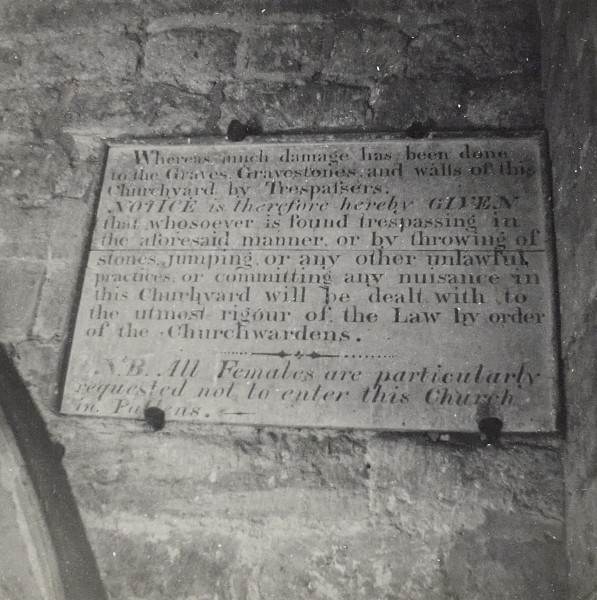 Whereas, much damage has been done
to the Graves, Gravestones, and walls of this
Churchyard by Trespaſsers.
NOTICE is therefore hereby GIVEN
that whosoever is found trespassing in
the aforesaid manner, or by throwing of
stones, jumping, or any other unlawful,
practices, or committing any nuisance in
this Churhyard will be dealt with to
the utmost rigour of the Law by order
of the Churchwardens.
N.B. All Females are particularly
requested not to enter this Church
in Pattens.